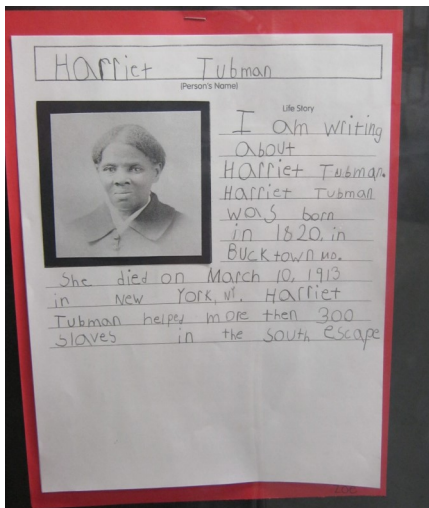 Harriet Tubman
(Person's Name)
Life Story
I am writing
about
Harriet Tubman.
Harriet Tubman
was born
in 1820. in
Bucktown MD.
She died on March 10, 1913
in New York, NY. Harriet
Tubman helped more then 300
slaves in the south escape